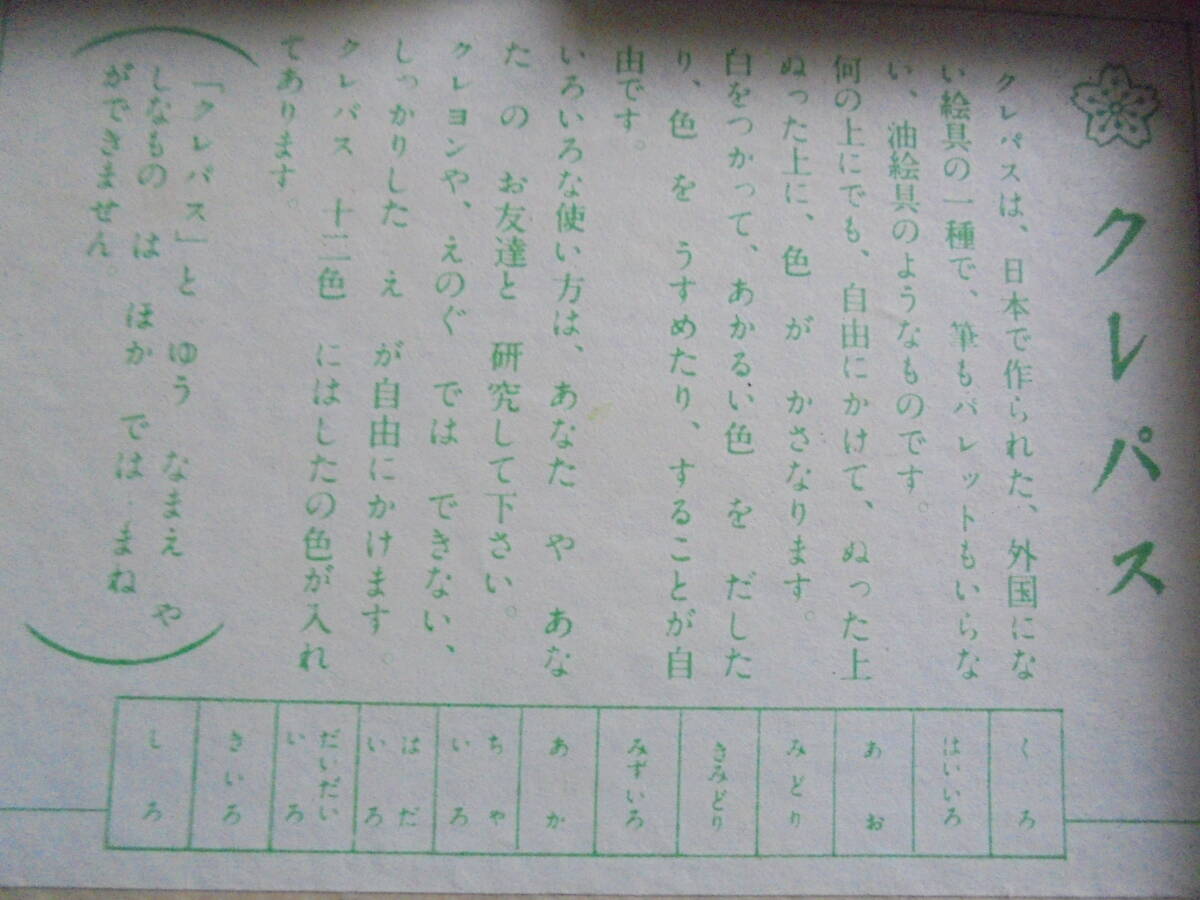 クレパス
クレパスは、日本で作られた、外国にな
い絵具の一種で、筆もパレットもいらな
い、油絵具のようなものです。
何の上にでも、自由にかけて、ぬった上
ぬった上に、色 が かさなります。
白をつかって、あかるい色 を だした
り、色 を うすめたり、することが自
由です。
いろいろな使い方は、あなた や あな
た の お友達と 研究して下さい。
クレヨンや、えのぐ では できない、
しっかりした え が自由にかけます。
クレパス 十二色 にはしたの色が入れ
てあります。
「クレパス」と ゆう なまえ や
しなもの は ほか では まね
ができません。
くろ
はいいろ
あお
みどり
きみどり
みずいろ
あか
ちや
いろ
はだ
いろ
だいだい
いろ
きいろ
しろ